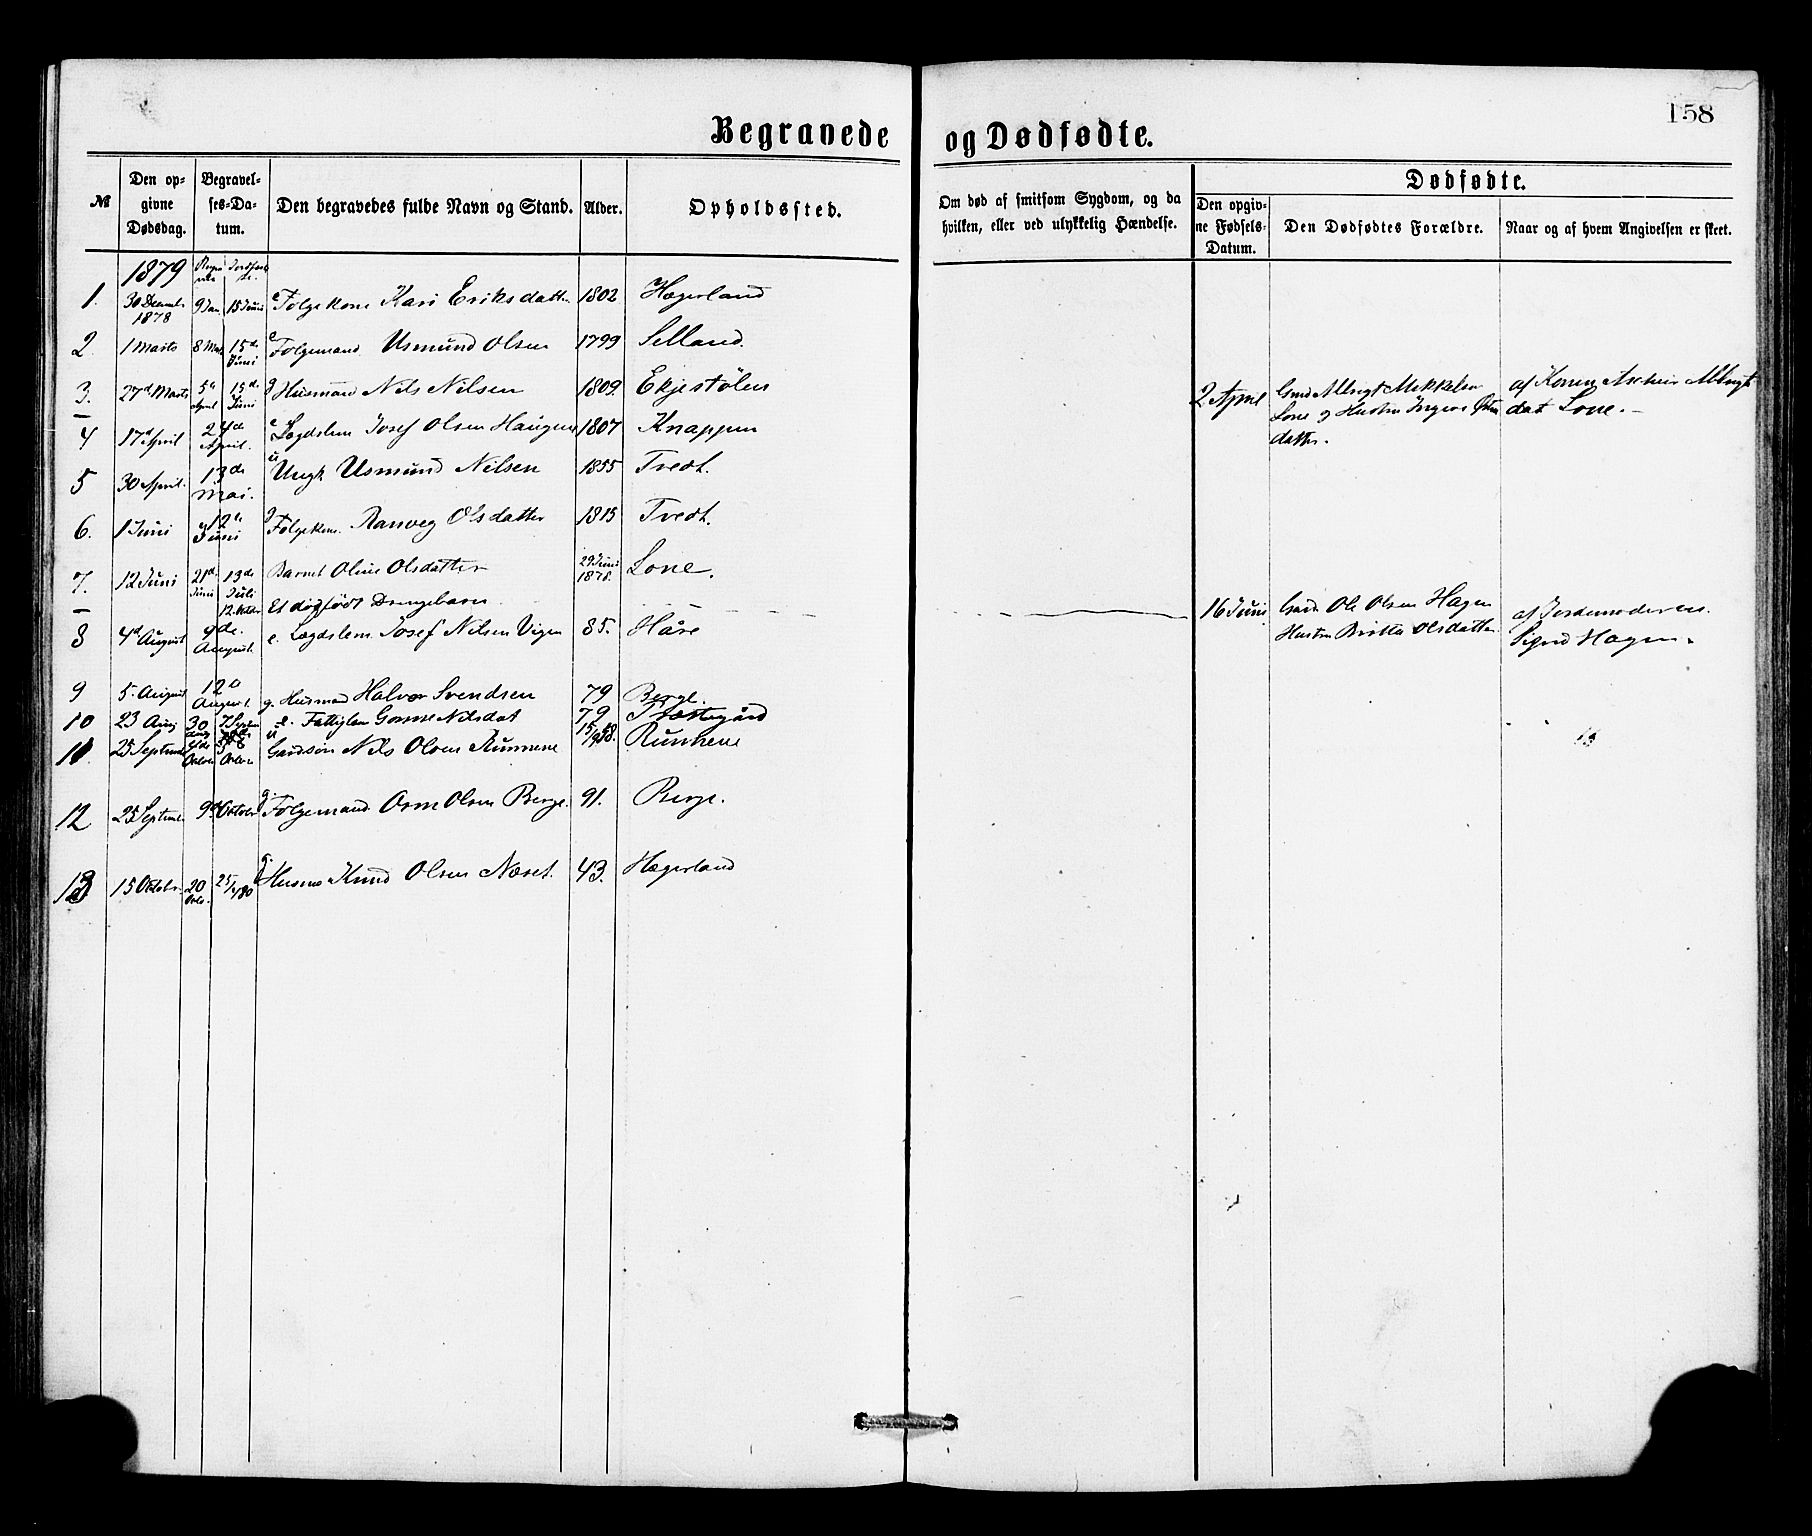 158
Begravede og Dødfødte.
№
Den opgivne Dødsdag.
Begravelses-Datum.
Den begravedes fulde Navn og Stand.
Alder.
Opholdssted.
Om død af smitsom Sygdom, og da hvilken, eller ved ulykkelig Hændelse.
Dødfødte.
Den opgivne Fødsels-Datum.
Den Dødfødtes Forældre.
Naar og af hvem Angivelsen er skeet.
1879
1. 30 Decemb. 1878 9 Jan. 15 Juni e Følgekone Kari Eriksdatter 1802 Hægerland
2. 1 Marts 8 Mar. 15de Juni e Følgemand Usmund Olsen 1799 Selland.
3. 27d Marts 5te April 15de Juni g Husmand Nils Nilsen 1809. Ekjestølen
– 2 April Mikkelsen Lone og Hustru datter. af dat Lone. –
4 17d April 24d April e Lægdslem Josef Olsen Haugen 1807 Knappen
5 30 April. 13de Mai. u Ungk Usmund Nilsen 1855 Tvedt.
6. 1 Juni 12te Juni g Følgekone. Ranveg Olsdatter 1815 Tvedt.
7. 12 Juni 21de Juni 13de Juli Barnet Oline Olsdatter 29 Juni 1878. Lone.
– Et dødfødt Drengebarn. 16 Juni Gard. Ole Olsen Hagen Hustru Britta Olsdatter af Jordemoderen Sigrid Hagen.
8 4d August 9de August. e. Lægdslem. Josef Nilsen Vigen 85. Håre
9 5. August 12te August. g. Husmand Halvor Svendsen 79 Berge.
10 23 Aug 30 Aug 7 Septem e. Fattiglem Gunne Nilsdat 79 Præstegård
11. 25 Septemb. Gardsøn Nils Olsen Runnene 15/9 58. Runnene
12 25 Septemb. 9d Oktober g. Følgemand Orm Olsen Berge. 91. Berge.
13 15 Oktober. 20 Okt. g. Husm Knud Olsen Næset. 43. Hægerland